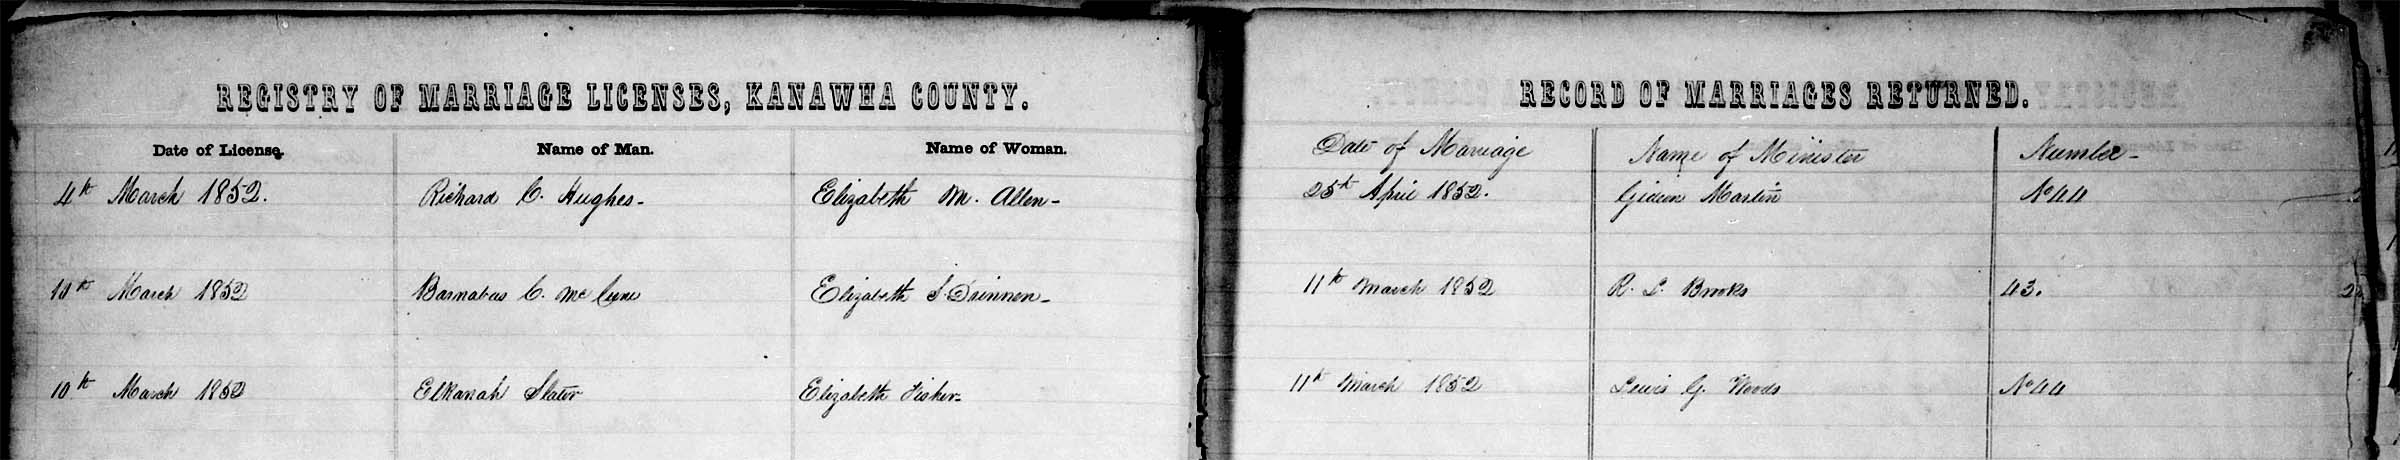 REGISTRY OF MARRIAGE LICENSES, KANAWHA COUNTY.
Date of License. Name of Man. Name of Woman.
4th March 1852. Richard C. Hughes- Elizabeth M. Allen-
10th March 1852 Barnabas C. McCune Elizabeth S. Drinnen-
10th March 1852 Elkanah Slater Elizabeth Fisher-
RECORD OF MARRIAGES RETURNED.
Date of Marriage Name of Minister Number-
25th April 1852. Gideon Martin No 44
11th March 1852 R. L. Brooks 43.
11th March 1852 Lewis G. Woods No 44